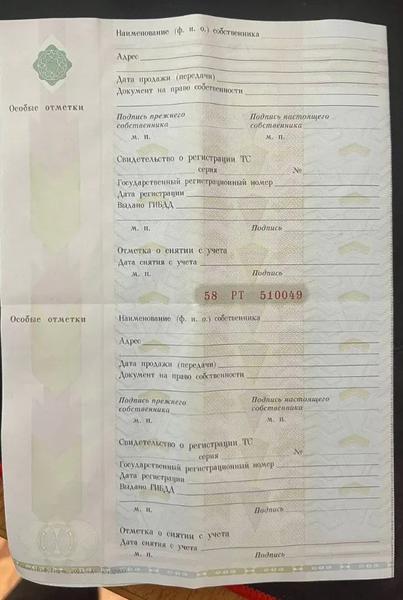 Наименование (ф. и. о.) собственника
Адрес
Дата продажи (передачи)
Документ на право собственности
Особые отметки
Подпись прежнего собственника
Подпись настоящего собственника
м. п.
м. п.
Свидетельство о регистрации ТС
серия №
Государственный регистрационный номер
Дата регистрации
Выдано ГИБДД
м. п. Подпись
Отметка о снятии с учета
Дата снятия с учета
м. п. Подпись
58 РТ 510049
Особые отметки
Наименование (ф. и. о.) собственника
Адрес
Дата продажи (передачи)
Документ на право собственности
Подпись прежнего собственника
Подпись настоящего собственника
м. п.
м. п.
Свидетельство о регистрации ТС
серия №
Государственный регистрационный номер
Дата регистрации
Выдано ГИБДД
м. п. Подпись
Отметка о снятии с учета
Дата снятия с учета
м. п. Подпись